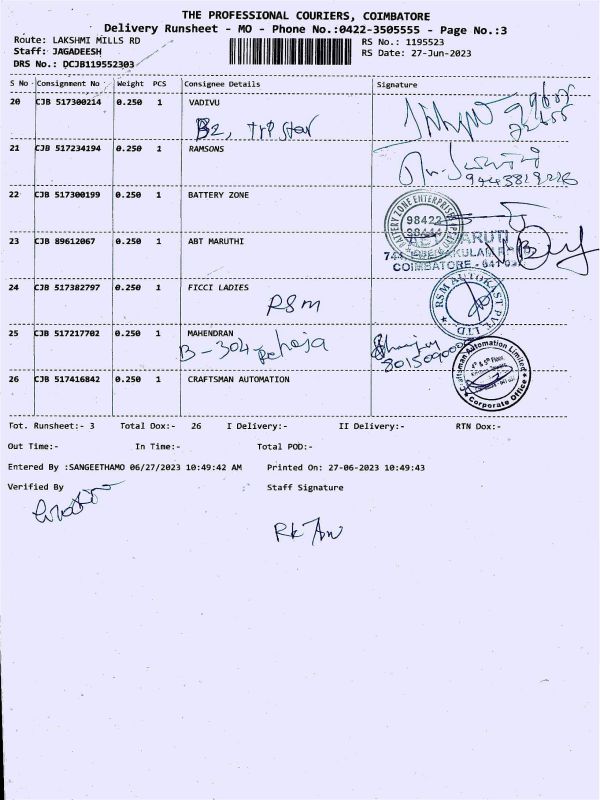 THE PROFESSIONAL COURIERS, COIMBATORE
Delivery Runsheet - MO - Phone No.:0422-3505555 - Page No.:3
Route: LAKSHMI MILLS RD
RS No.: 1195523
Staff: JAGADEESH
RS Date: 27-Jun-2023
DRS No.: DCJB119552303
S No Consignment No Weight PCS Consignee Details Signature
20 CJB 517300214 0.250 1 VADIVU
B2, TVP Star
21 CJB 517234194 0.250 1 RAMSONS
22 CJB 517300199 0.250 1 BATTERY ZONE
BATTERY ZONE ENTERPRISES
98422
23 CJB 89612067 0.250 1 ABT MARUTHI
COIMBATORE
24 CJB 517382797 0.250 1 FICCI LADIES
RSM
RSM AUTOKAST PVT LTD
25 CJB 517217702 0.250 1 MAHENDRAN
B-304 Raheja
26 CJB 517416842 0.250 1 CRAFTSMAN AUTOMATION
Craftsman Automation Limited
4th & 5th Floor
Corporate Office
Tot. Runsheet:- 3 Total Dox:- 26 I Delivery:- II Delivery:- RTN Dox:-
Out Time:- In Time:- Total POD:-
Entered By :SANGEETHAMO 06/27/2023 10:49:42 AM Printed On: 27-06-2023 10:49:43
Verified By Staff Signature